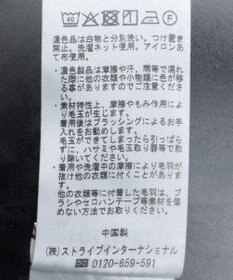 40
濃色品は白物と分別洗い。つけ置き
禁止。洗濯ネット使用。アイロンあ
て布使用。
・濃色製品は摩擦や汗、雨等で濡れ
た際に他の衣類や小物類に色が移
る事がありますのでご注意くださ
い。
・素材特性上、摩擦やもみ作用によ
り毛玉が生じます。
・着用後はブラッシングによるお手
入れをお勧めします。
毛玉ができてしまったら引っぱら
ずに、ハサミや毛玉取り等で取り
除いてください。
・着用や洗濯中の摩擦により毛羽が
抜け他の衣類に付くことがありま
す。
他の衣類等に付着した毛羽は、ブ
ラシやセロハンテープ等素材を傷
めない方法でお取りください。
中国製
(株)ストライプインターナショナル
0120-659-591